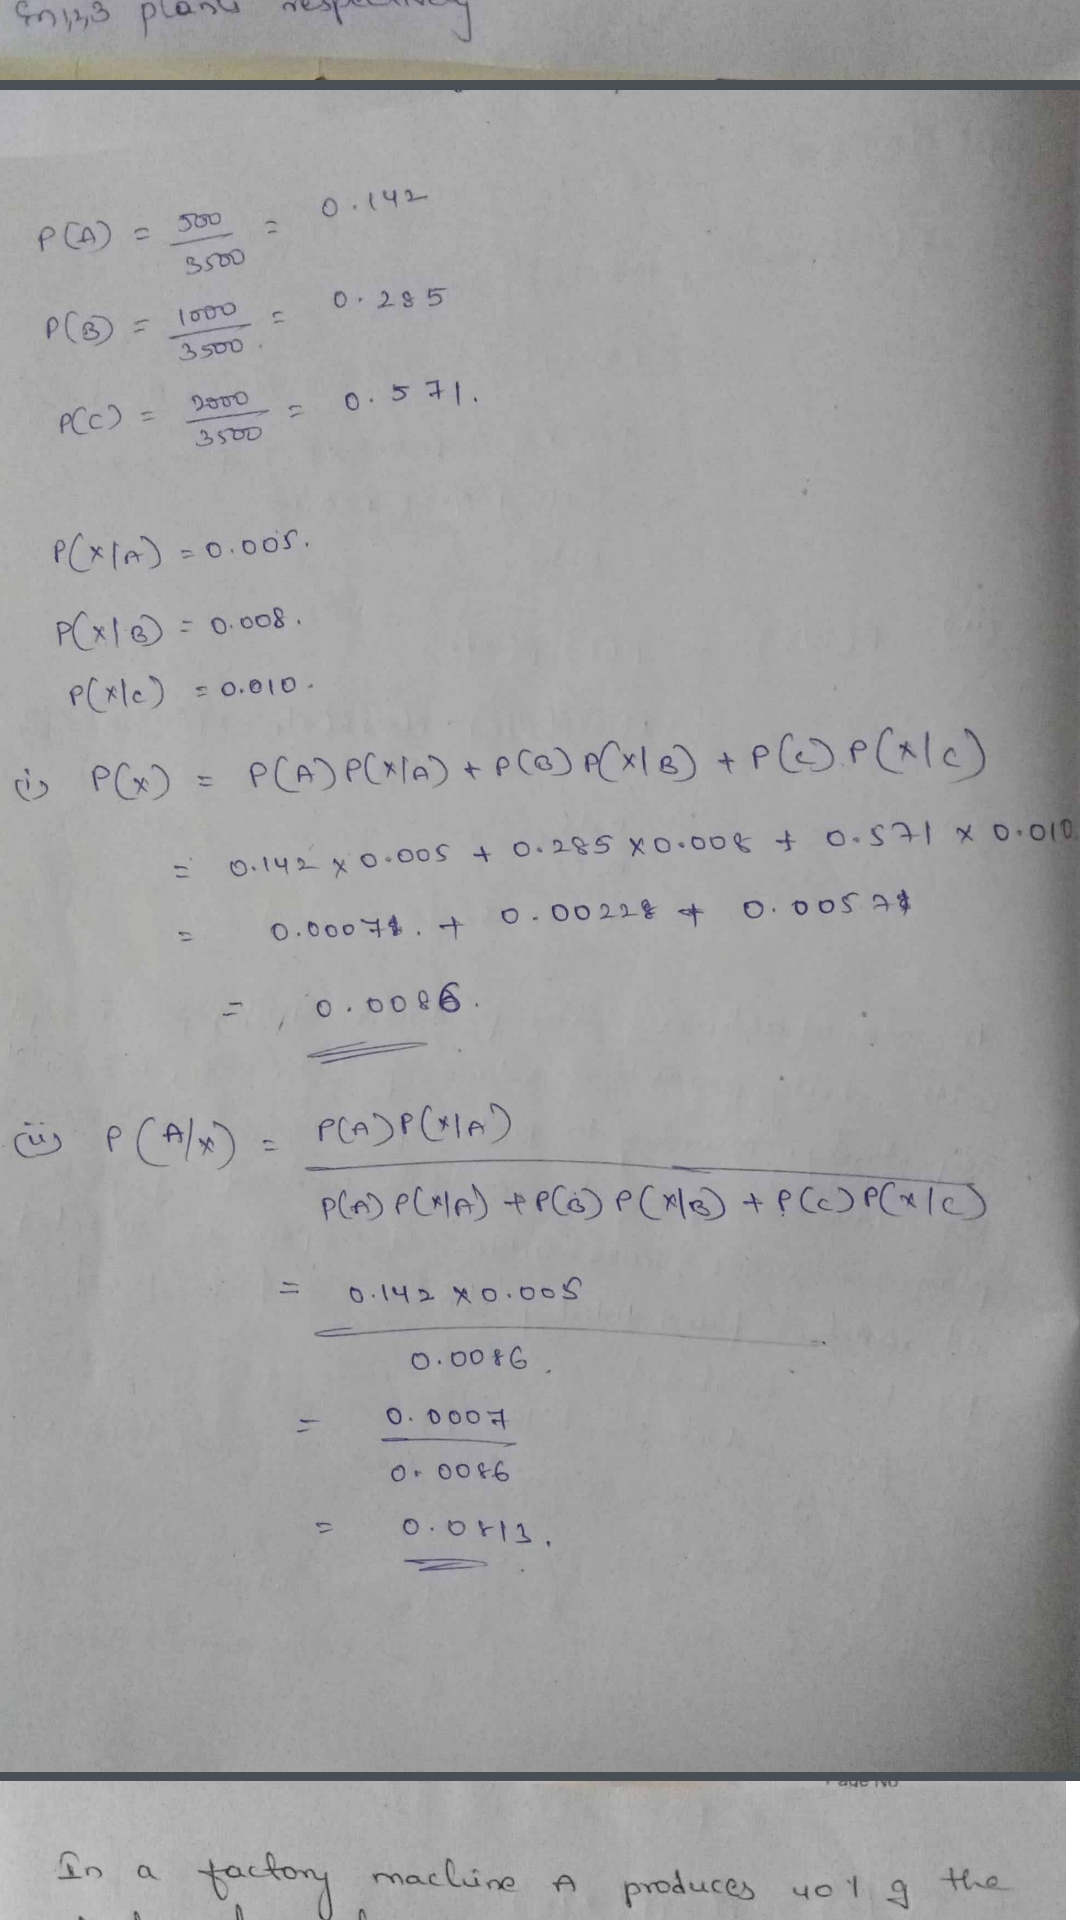 In 1,2,3 plants respectively
P(A) = 500/3500 = 0.142
P(B) = 1000/3500 = 0.285
P(C) = 2000/3500 = 0.571.
P(X|A) = 0.005.
P(X|B) = 0.008.
P(X|C) = 0.010.
(i) P(X) = P(A) P(X|A) + P(B) P(X|B) + P(C) P(X|C)
= 0.142 x 0.005 + 0.285 x 0.008 + 0.571 x 0.010
= 0.00071. + 0.00228 + 0.00571
= 0.0086.
(ii) P(A/X) = P(A) P(X|A)
P(A) P(X|A) + P(B) P(X|B) + P(C) P(X|C)
= 0.142 x 0.005
0.0086.
= 0.0007
0.0086
= 0.0813.
Page No
In a factory machine A produces 40% g the